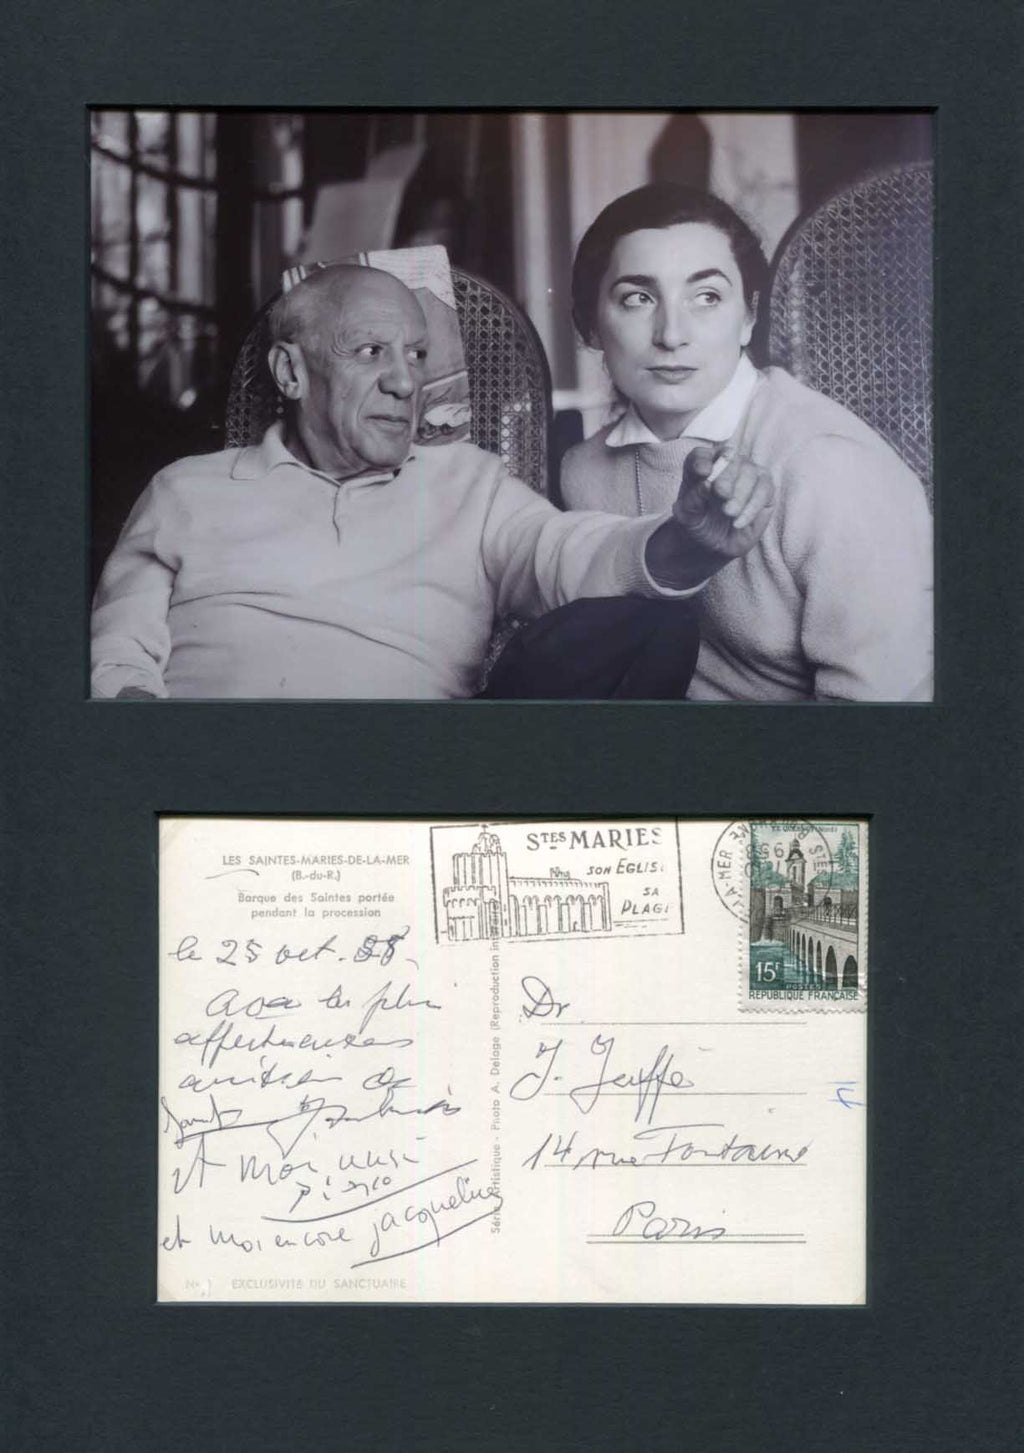 LES SAINTES-MARIES-DE-LA-MER
(B.-du-R.)
Barque des Saintes portée
pendant la procession
le 25 oct. 58
avec les plus
affectueuses
amitiés de
et moi aussi
Picasso
et moi encore jacqueline
EXCLUSIVITÉ DU SANCTUAIRE
Série Artistique - Photo A. Delage (Reproduction
STES MARIES
SON EGLISE
SA
PLAGE
15F
POSTES
REPUBLIQUE FRANÇAISE
Dr
J. Jaffé
14 rue Fontaine
Paris